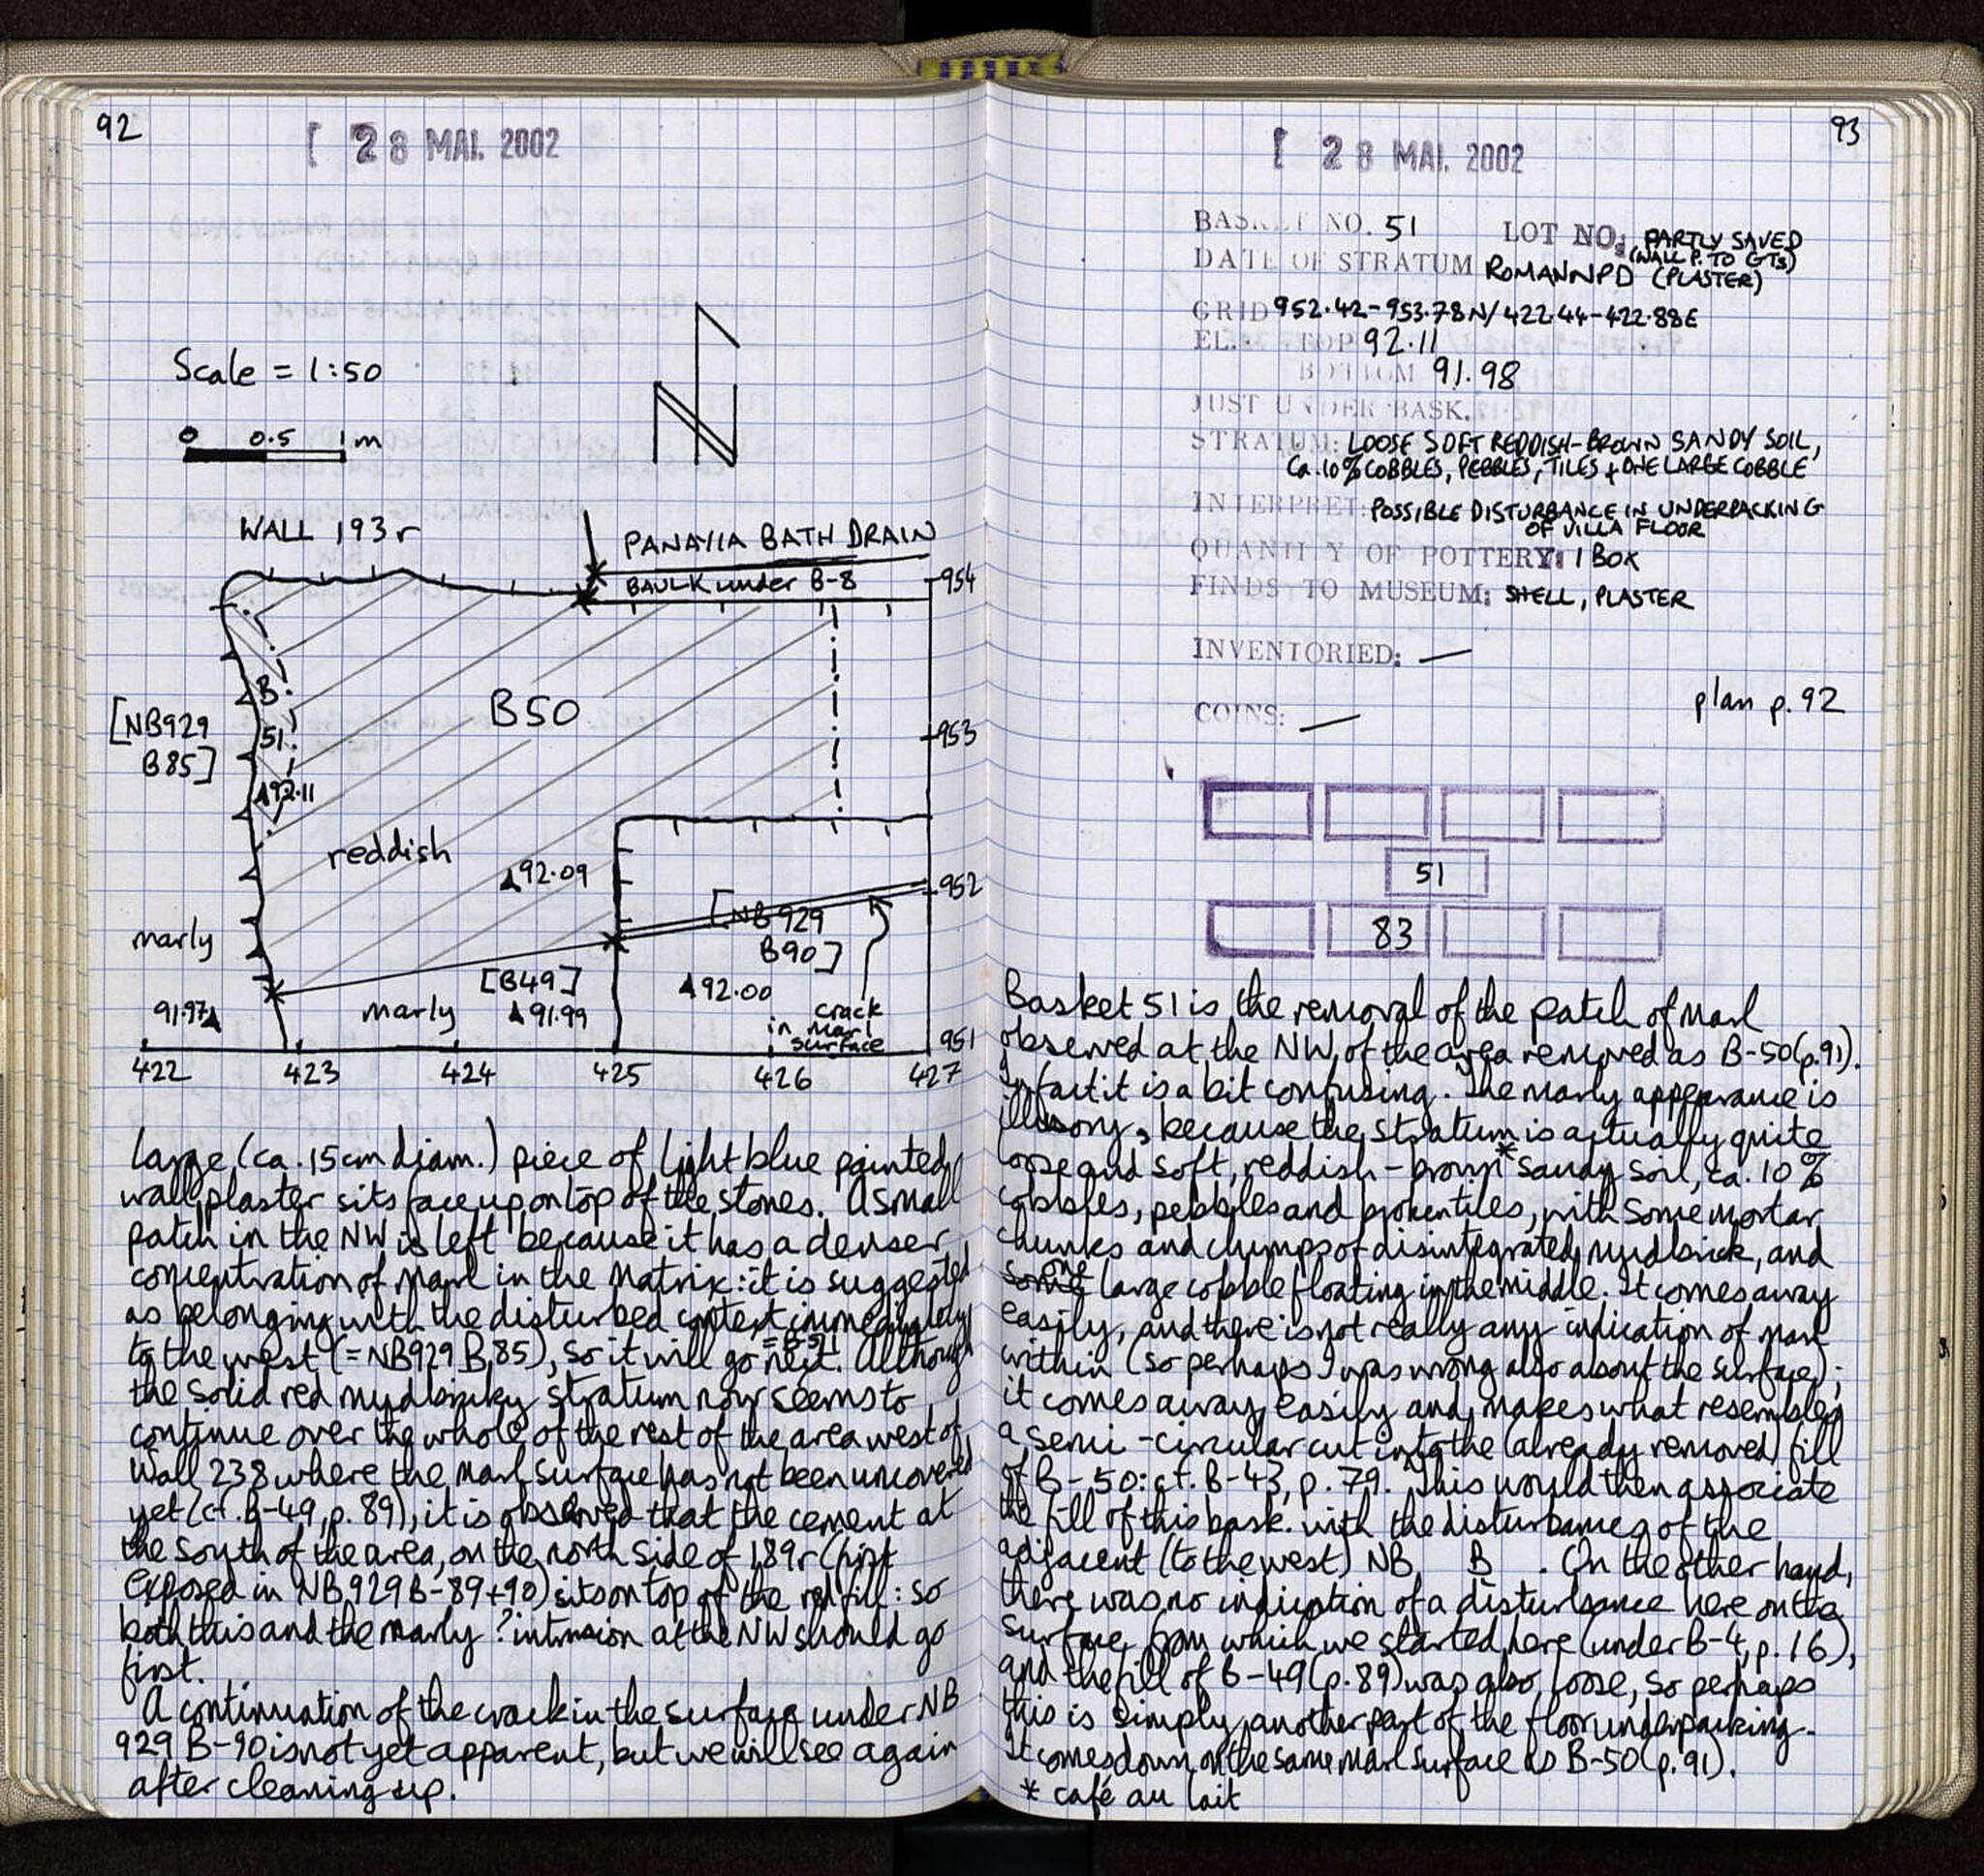 92
[ 28 MAI. 2002
Scale = 1:50
0 0.5 1 m
N
WALL 193r
PANAYIA BATH DRAIN
BAULK under B-8
954
[NB929
B85]
B
51
B50
953
▲92.11
reddish
▲92.09
952
[NB929
B90]
marly
[B49]
▲92.00
91.97▲
marly
▲91.99
crack
in marl
surface
951
422 423 424 425 426 427
large (ca. 15cm diam.) piece of light blue painted
wall plaster sits face up on top of the stones. A small
patch in the NW is left because it has a denser
concentration of marl in the matrix: it is suggested
as belonging with the disturbed context immediately
to the west (=NB929 B85), so it will go next. Although
= B51
the solid red mudbricky stratum now seems to
continue over the whole of the rest of the area west of
Wall 238 where the marl surface has not been uncovered
yet (cf. B-49, p. 89), it is observed that the cement at
the south of the area, on the north side of 189r (first
exposed in NB929B-89+90) sits on top of the red fill: so
both this and the marly ?intrusion at the NW should go
first.
A continuation of the crack in the surface under NB
929 B-90 is not yet apparent, but we will see again
after cleaning up.
93
[ 28 MAI. 2002
BASKET NO. 51 LOT NO: PARTLY SAVED
(WALL P. TO GTs)
DATE OF STRATUM ROMAN NPD (PLASTER)
GRID 952.42-953.78N/422.44-422.88E
EL. TOP 92.11
BOTTOM 91.98
JUST UNDER BASK.
STRATUM: LOOSE SOFT REDDISH-BROWN SANDY SOIL,
Ca. 10% COBBLES, PEBBLES, TILES + ONE LARGE COBBLE
INTERPRET: POSSIBLE DISTURBANCE IN UNDERPACKING
OF VILLA FLOOR
QUANTITY OF POTTERY: 1 BOX
FINDS TO MUSEUM: SHELL, PLASTER
INVENTORIED: —
plan p. 92
COINS: —
51
83
Basket 51 is the removal of the patch of marl
observed at the NW of the area removed as B-50 (p.91).
In fact it is a bit confusing. The marly appearance is
illusory, because the stratum is actually quite
loose and soft, reddish-brown* sandy soil, ca. 10%
cobbles, pebbles and broken tiles, with some mortar
chunks and clumps of disintegrated mudbrick, and
some one large cobble floating in the middle. It comes away
easily, and there is not really any indication of marl
within (so perhaps I was wrong also about the surface);
it comes away easily and makes what resembles
a semi-circular cut into the (already removed) fill
of B-50: cf. B-43, p. 79. This would then associate
the fill of this bask. with the disturbances of the
adjacent (to the west) NB B . On the other hand,
there was no indication of a disturbance here on the
surface from which we started here (under B-4, p. 16),
and the fill of B-49 (p. 89) was also loose, so perhaps
this is simply another part of the floor underpacking.
It comes down on the same marl surface as B-50 (p. 91).
* café au lait